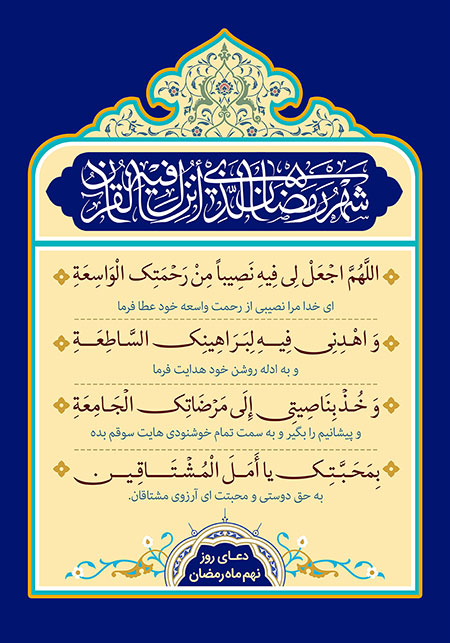 شَهْرُ رَمَضَانَ الَّذِي أُنْزِلَ فِيهِ الْقُرْآنُ
اللَّهُمَّ اجْعَلْ لِی فِیهِ نَصِیباً مِنْ رَحْمَتِکَ الْوَاسِعَةِ
ای خدا مرا نصیبی از رحمت واسعه خود عطا فرما
وَ اهْدِنِی فِیهِ لِبَرَاهِینِکَ السَّاطِعَةِ
و به ادله روشن خود هدایت فرما
وَ خُذْ بِنَاصِیَتِی إِلَی مَرْضَاتِکَ الْجَامِعَةِ
و پیشانیم را بگیر و به سمت تمام خوشنودی هایت سوقم بده
بِمَحَبَّتِکَ یا أَمَلَ الْمُشْتَاقِینَ
به حق دوستی و محبتت ای آرزوی مشتاقان.
دعـای روز
نهم ماه رمضان